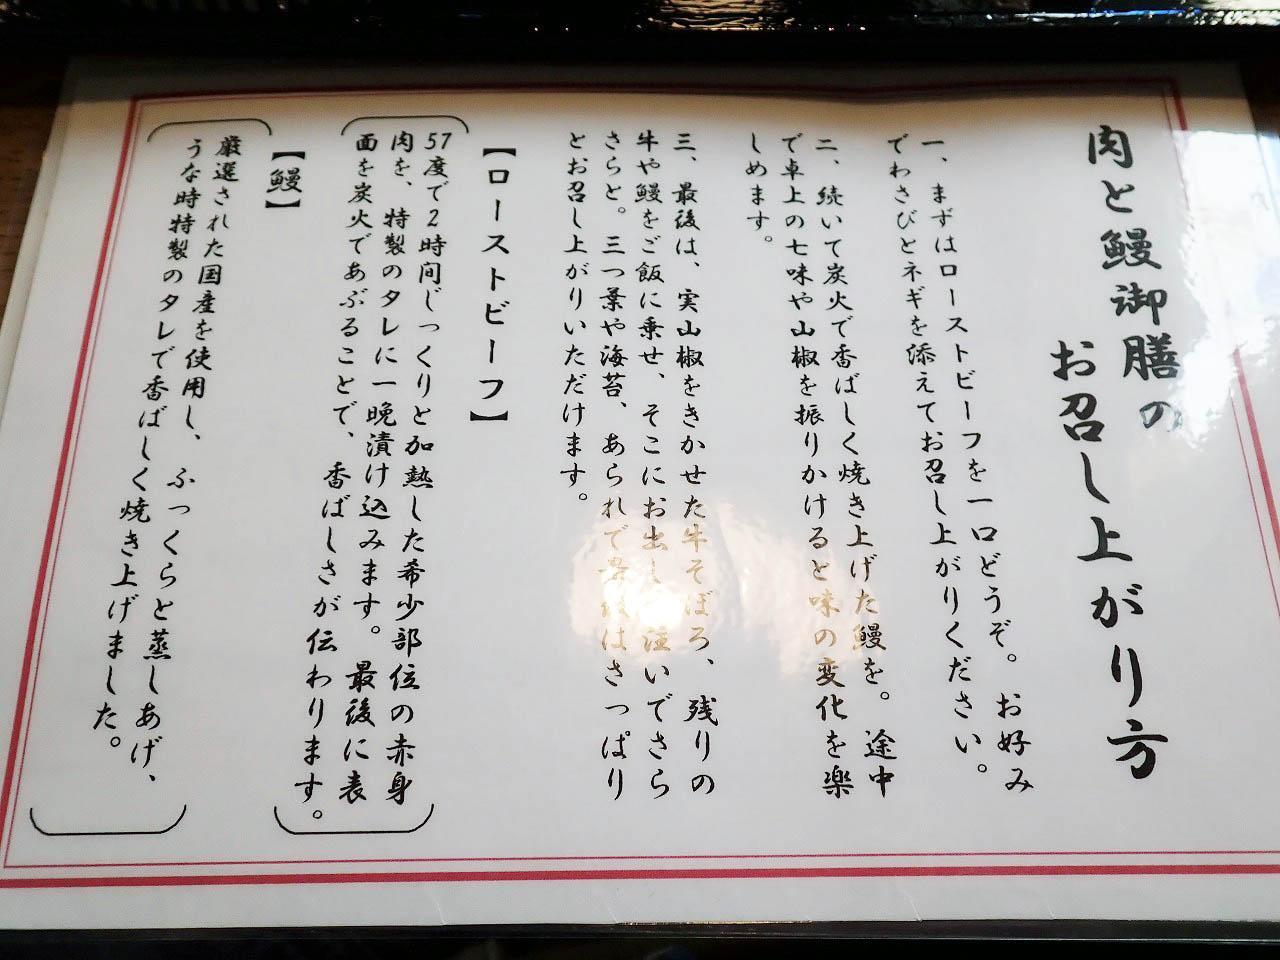 肉と鰻御膳の
お召し上がり方
一、まずはローストビーフを一口どうぞ。お好み
でわさびとネギを添えてお召し上がりください。
二、続いて炭火で香ばしく焼き上げた鰻を。途中
で卓上の七味や山椒を振りかけると味の変化を楽
しめます。
三、最後は、実山椒をきかせた牛そぼろ、残りの
牛や鰻をご飯に乗せ、そこにお出し注いでさら
さらと。三つ葉や海苔、あられで はさっぱり
とお召し上がりいただけます。
【ローストビーフ】
57度で2時間じっくりと加熱した希少部位の赤身
肉を、特製のタレに一晩漬け込みます。最後に表
面を炭火であぶることで、香ばしさが伝わります。
【鰻】
厳選された国産を使用し、ふっくらと蒸しあげ、
うな時特製のタレで香ばしく焼き上げました。